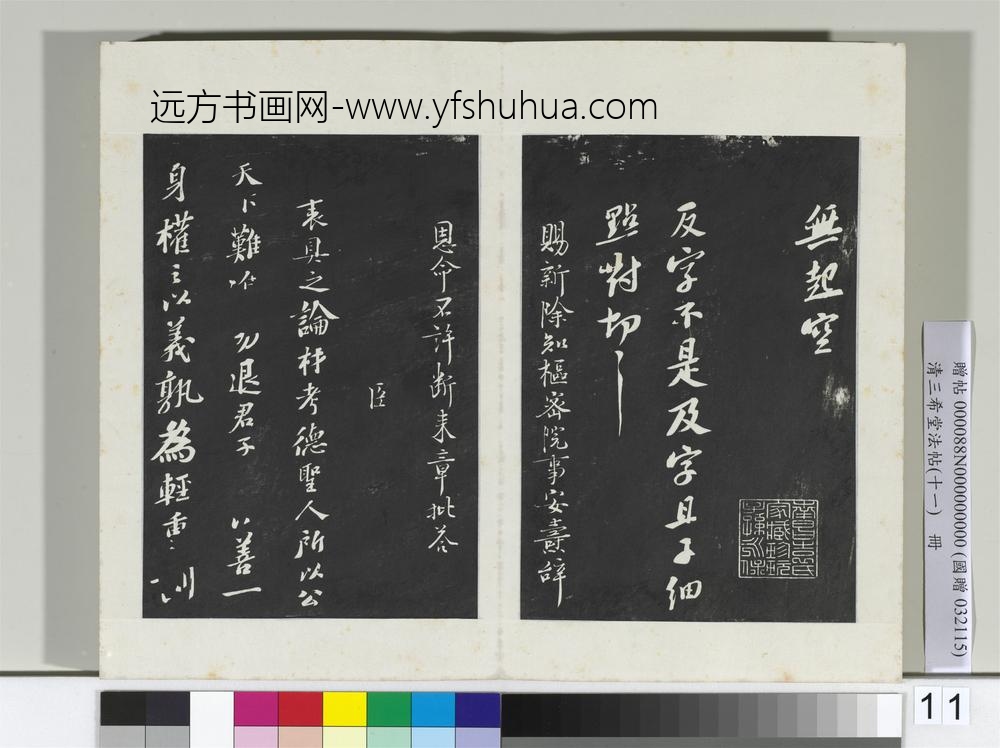 远方书画网-www.yfshuhua.com
無起空
反字不是及字且子细
點對切之
賜新除知樞密院事安燾辞
恩命不許断来章批荅
臣
表具之論枰考德聖人所以公
天下難
勿退君子 以善一
身權之以義孰為輕重
贈帖 000088N000000000 (國贈 032115)
清三希堂法帖(十一) 冊
11